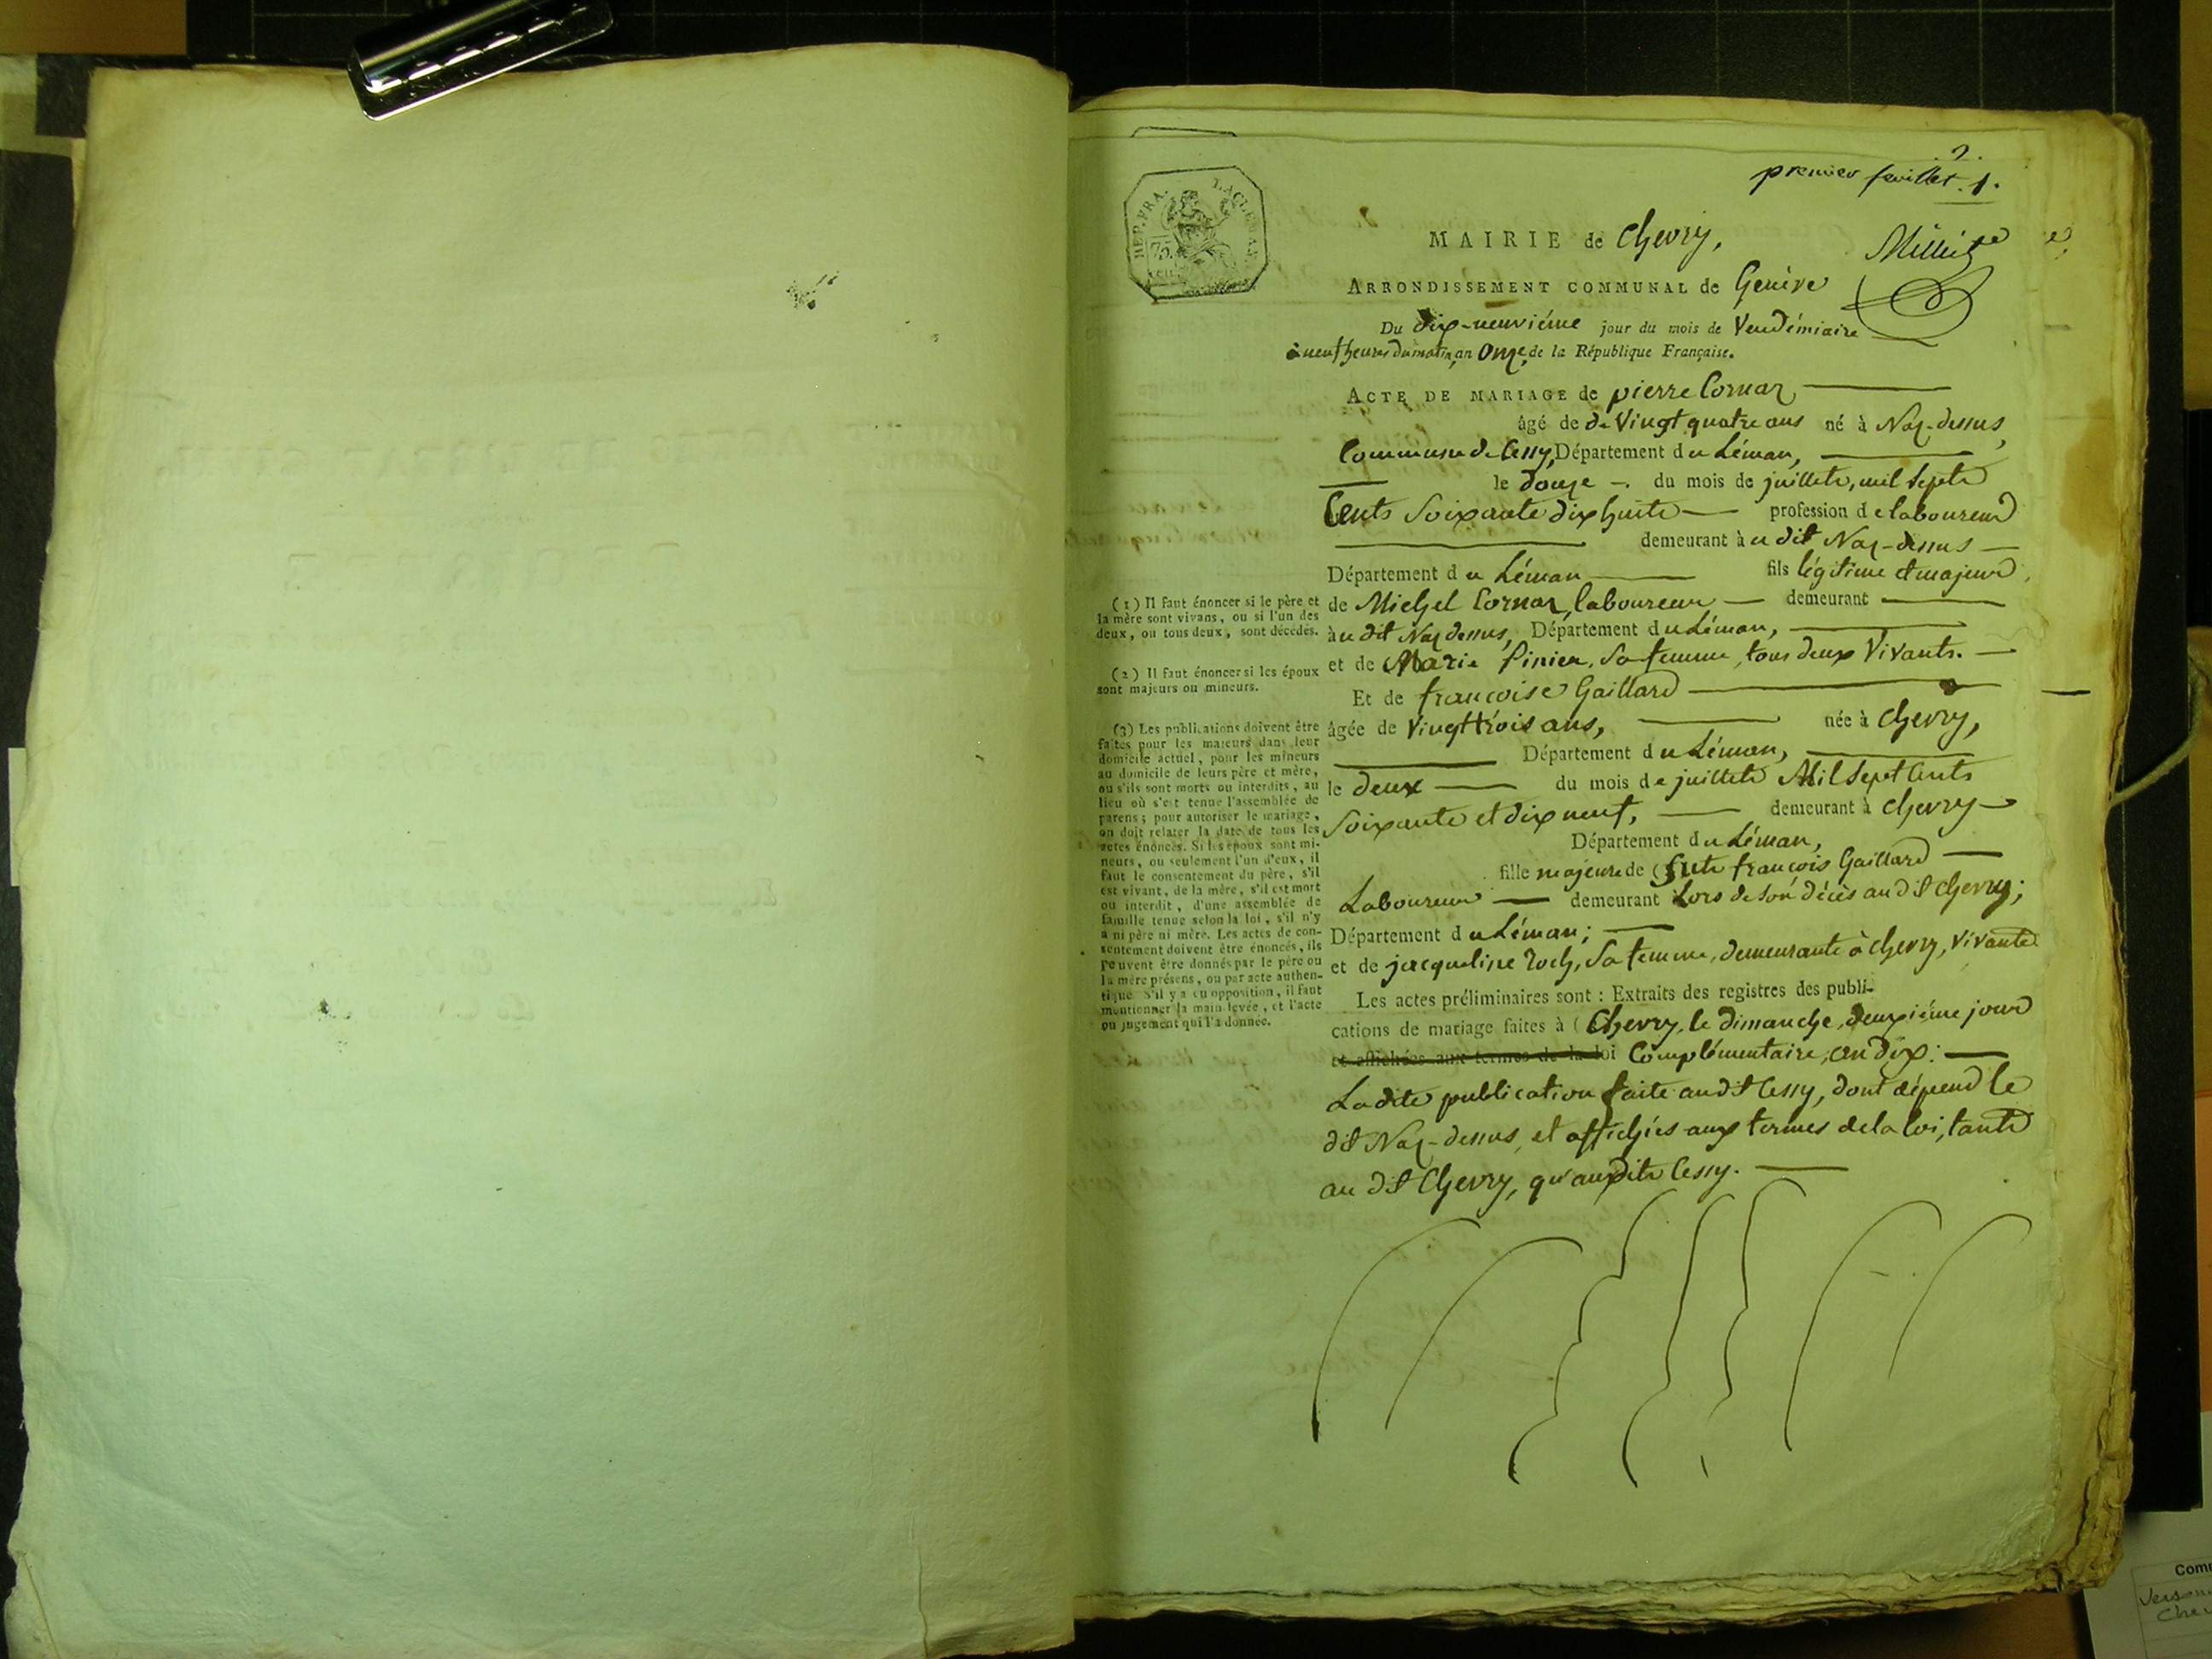 2.
premier feuillet. 1.
REP. FRA.
75
CEN.
MAIRIE de Chevry,
ARRONDISSEMENT COMMUNAL de Genève
Du dix-neuviéme jour du mois de Vendémiaire
à neuf heures du matin, an Onze, de la République Française.
ACTE DE MARIAGE de pierre Cornaz
âgé de de Vingt quatre ans né à Naz-dessus,
Commune de Cessy, Département du Léman,
le douze du mois de juillet, mil Sept
Cents Soixante dix huit profession de laboureur
demeurant àu dit Naz-dessus
Département du Léman fils légitime et majeur,
de Michel Cornaz, laboureur demeurant
àu dit Naz dessus, Département du Léman,
et de Marie Pinier, Sa femme, tous deux Vivants.
Et de françoise Gaillard
âgée de Vingt trois ans, née à Chevry,
Département du Léman,
le deux du mois de juillet Mil Sept Cents
Soixante et dix neuf, demeurant à Chevry
Département du Léman,
fille majeure de feu françois Gaillard
Laboureur demeurant Lors de son décès au dit Chevry;
Département du Léman;
et de jacqueline Roch, Sa femme, demeurante à Chevry, Vivante
Les actes préliminaires sont : Extraits des registres des publi-
cations de mariage faites à (Chevry, le dimanche, deuxiéme jour
et affichées aux termes de la loi Complémentaire, an dix:
Ladite publication faite audit Cessy, dont dépend le
dit Naz-dessus, et affichées aux termes de la loi, tant
au dit Chevry, qu'audit Cessy.
(1) Il faut énoncer si le père et
la mère sont vivans, ou si l'un des
deux, ou tous deux, sont décédés.
(2) Il faut énoncer si les époux
sont majeurs ou mineurs.
(3) Les publications doivent être
faites pour les majeurs dans leur
domicile actuel, pour les mineurs
au domicile de leurs père et mère,
ou s'ils sont morts ou interdits, au
lieu où s'est tenue l'assemblée de
parens; pour autoriser le mariage,
on doit relater la date de tous les
actes énoncés. Si les époux sont mi-
neurs, ou seulement l'un d'eux, il
faut le consentement du père, s'il
est vivant, de la mère, s'il est mort
ou interdit, d'une assemblée de
famille tenue selon la loi, s'il n'y
a ni père ni mère. Les actes de con-
sentement doivent être énoncés, ils
peuvent être donnés par le père ou
la mère présens, ou par acte authen-
tique. S'il y a eu opposition, il faut
mentionner la main levée, et l'acte
ou jugement qui l'a donnée.